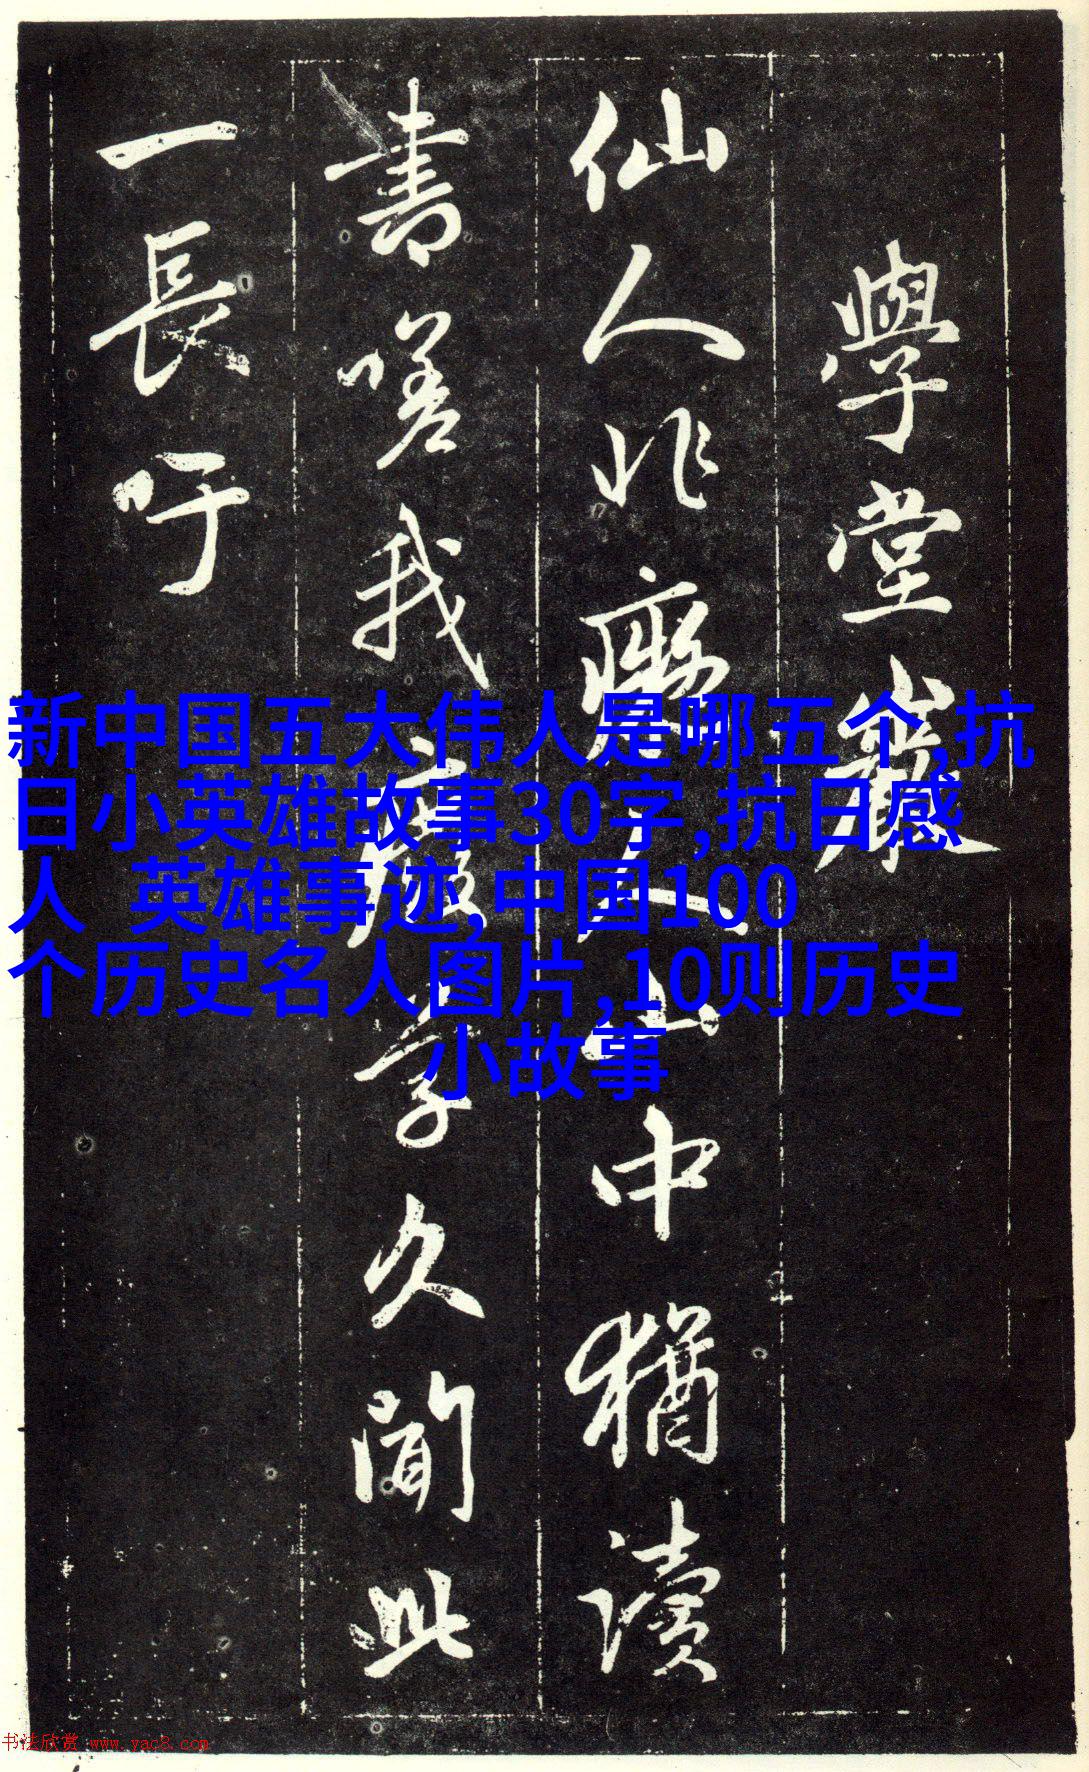 學堂巖
仙人非癡人山中猶讀
書嗟我廢學久聞此
一長吁
新中国五大伟人是哪五个,抗
日小英雄故事30字,抗日感
人 英雄事迹,中国100
个历史名人图片,10则历史
小故事
书法欣赏 www.yac8.com